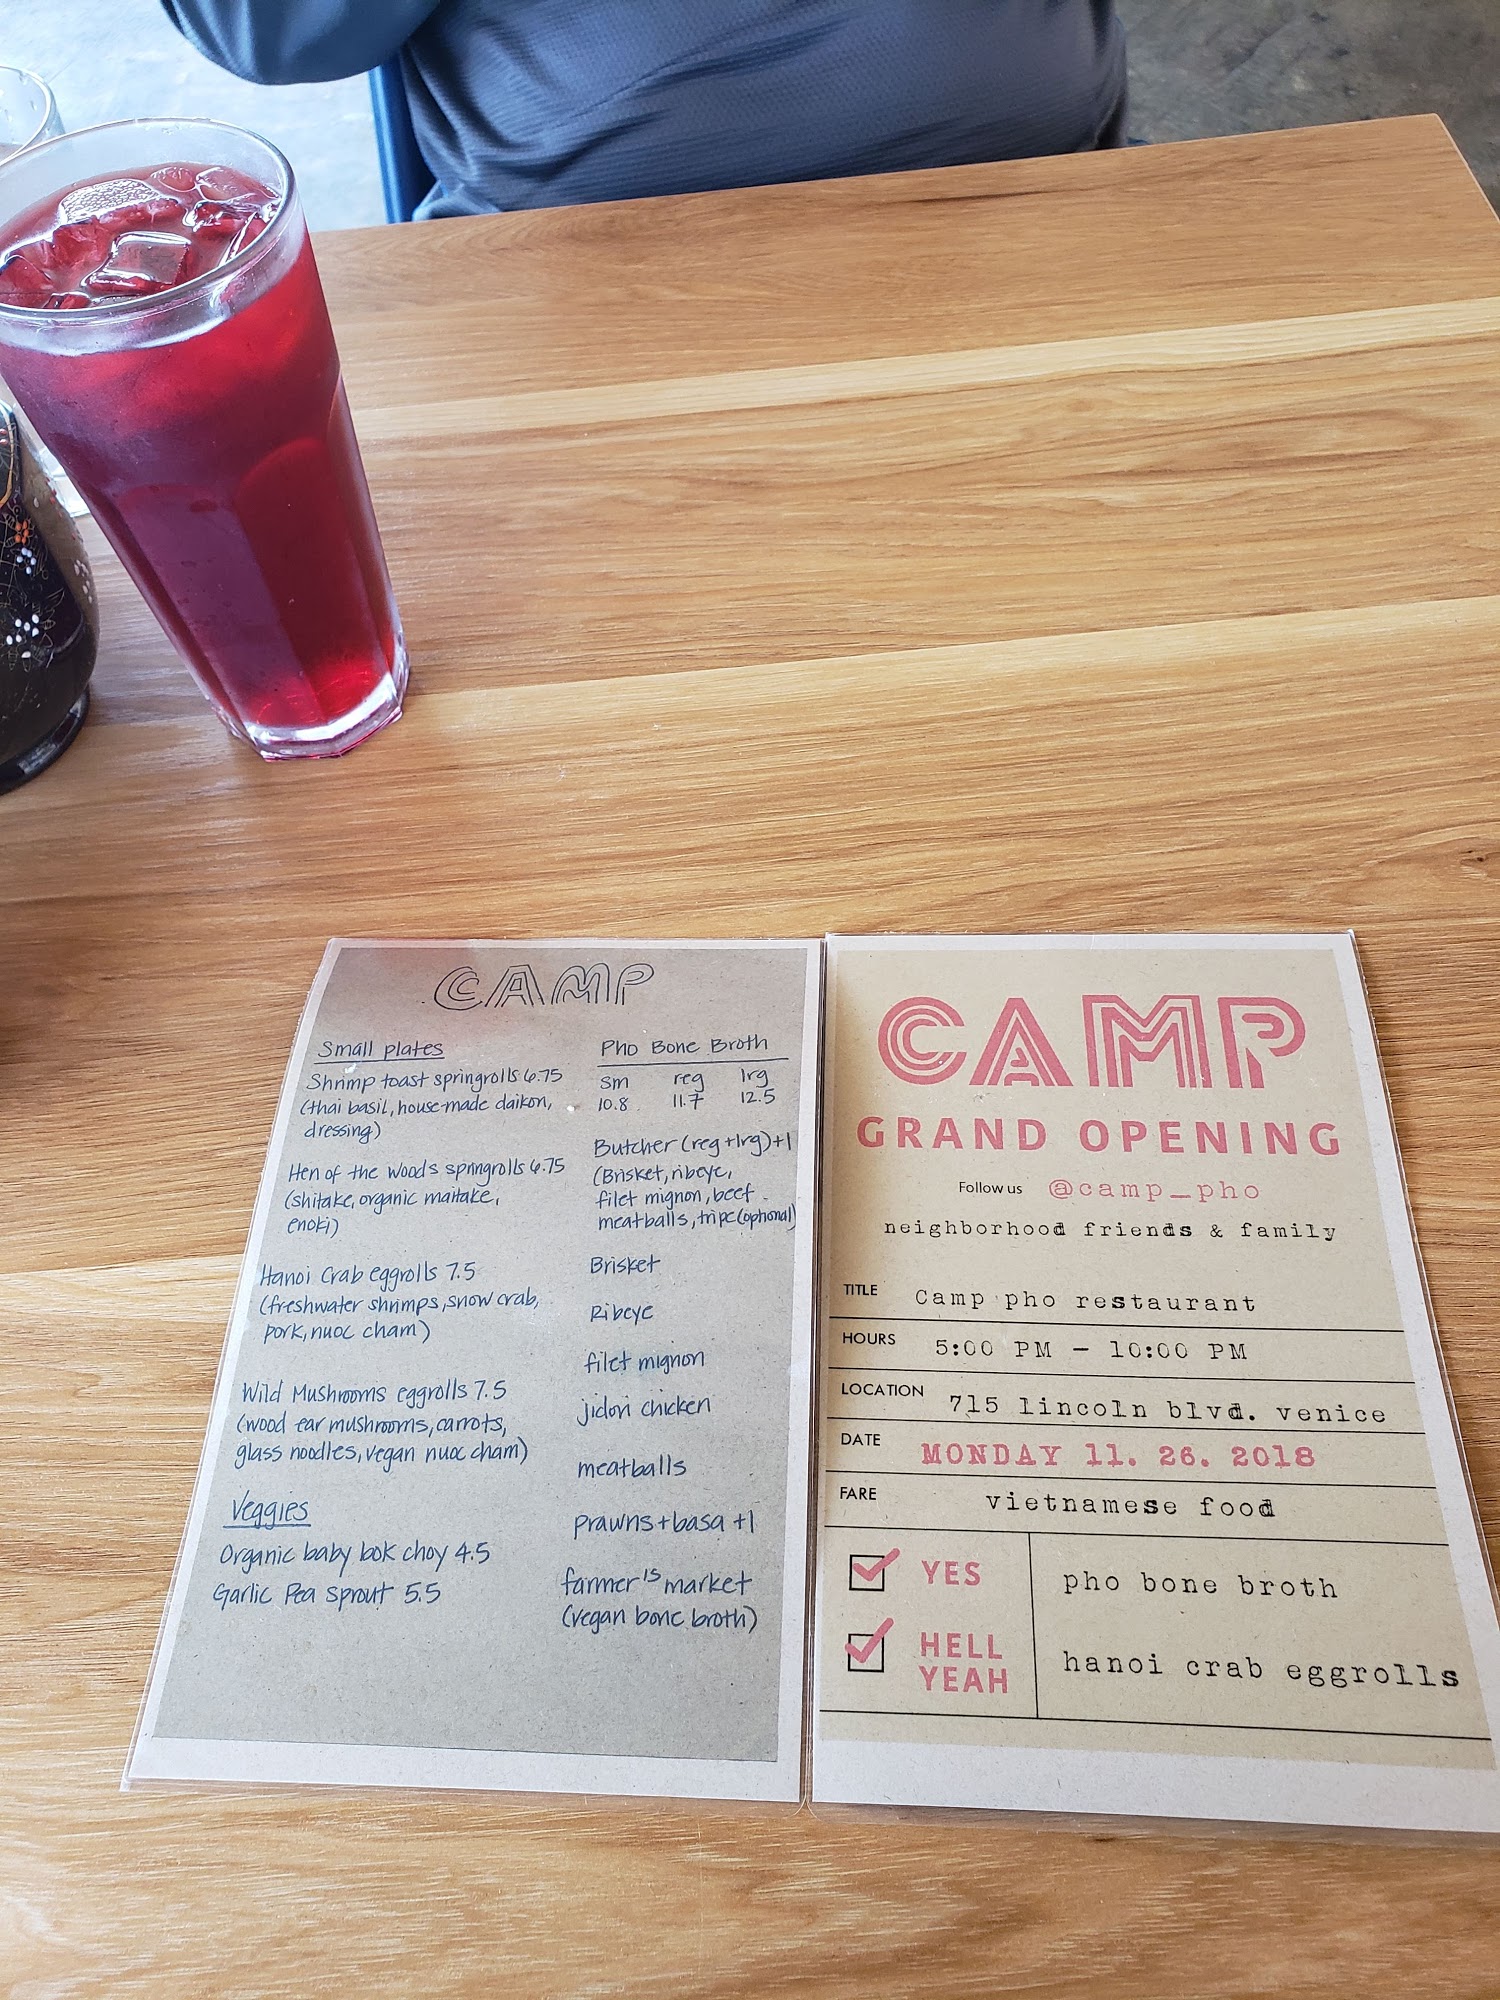 CAMP
Small plates
Shrimp toast springrolls 6.75
(thai basil, house-made daikon,
dressing)
Hen of the woods springrolls 6.75
(shitake, organic maitake,
enoki)
Hanoi Crab eggrolls 7.5
(freshwater shrimps, snow crab,
pork, nuoc cham)
Wild Mushrooms eggrolls 7.5
(wood ear mushrooms, carrots,
glass noodles, vegan nuoc cham)
Veggies
Organic baby bok choy 4.5
Garlic Pea sprout 5.5
Pho Bone Broth
sm reg lrg
10.8 11.7 12.5
Butcher (reg+lrg)+1
(Brisket, ribeye,
filet mignon, beef
meatballs, tripe (optional)
Brisket
Ribeye
filet mignon
jidori chicken
meatballs
prawns + basa +1
farmer's market
(vegan bone broth)
CAMP
GRAND OPENING
Follow us @camp_pho
neighborhood friends & family
TITLE Camp pho restaurant
HOURS 5:00 PM - 10:00 PM
LOCATION 715 lincoln blvd. venice
DATE MONDAY 11. 26. 2018
FARE vietnamese food
YES pho bone broth
HELL
YEAH hanoi crab eggrolls